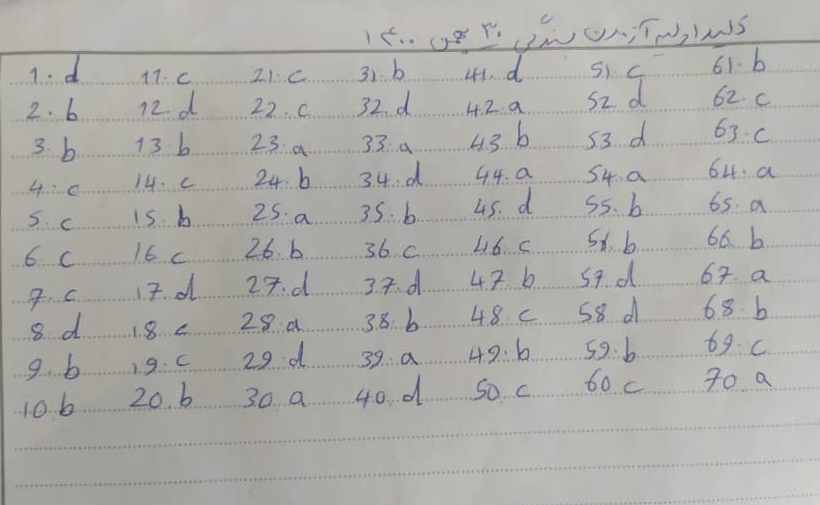 کلید اولیه آزمون بسندگی ۳۰ بهمن ۱۴۰۰
1. d 11. c 21. c 31. b 41. d 51. c 61. b
2. b 12. d 22. c 32. d 42. a 52. d 62. c
3. b 13. b 23. a 33. a 43. b 53. d 63. c
4. c 14. c 24. b 34. d 44. a 54. a 64. a
5. c 15. b 25. a 35. b 45. d 55. b 65. a
6. c 16. c 26. b 36. c 46. c 56. b 66. b
7. c 17. d 27. d 37. d 47. b 57. d 67. a
8. d 18. c 28. a 38. b 48. c 58. d 68. b
9. b 19. c 29. d 39. a 49. b 59. b 69. c
10. b 20. b 30. a 40. d 50. c 60. c 70. a